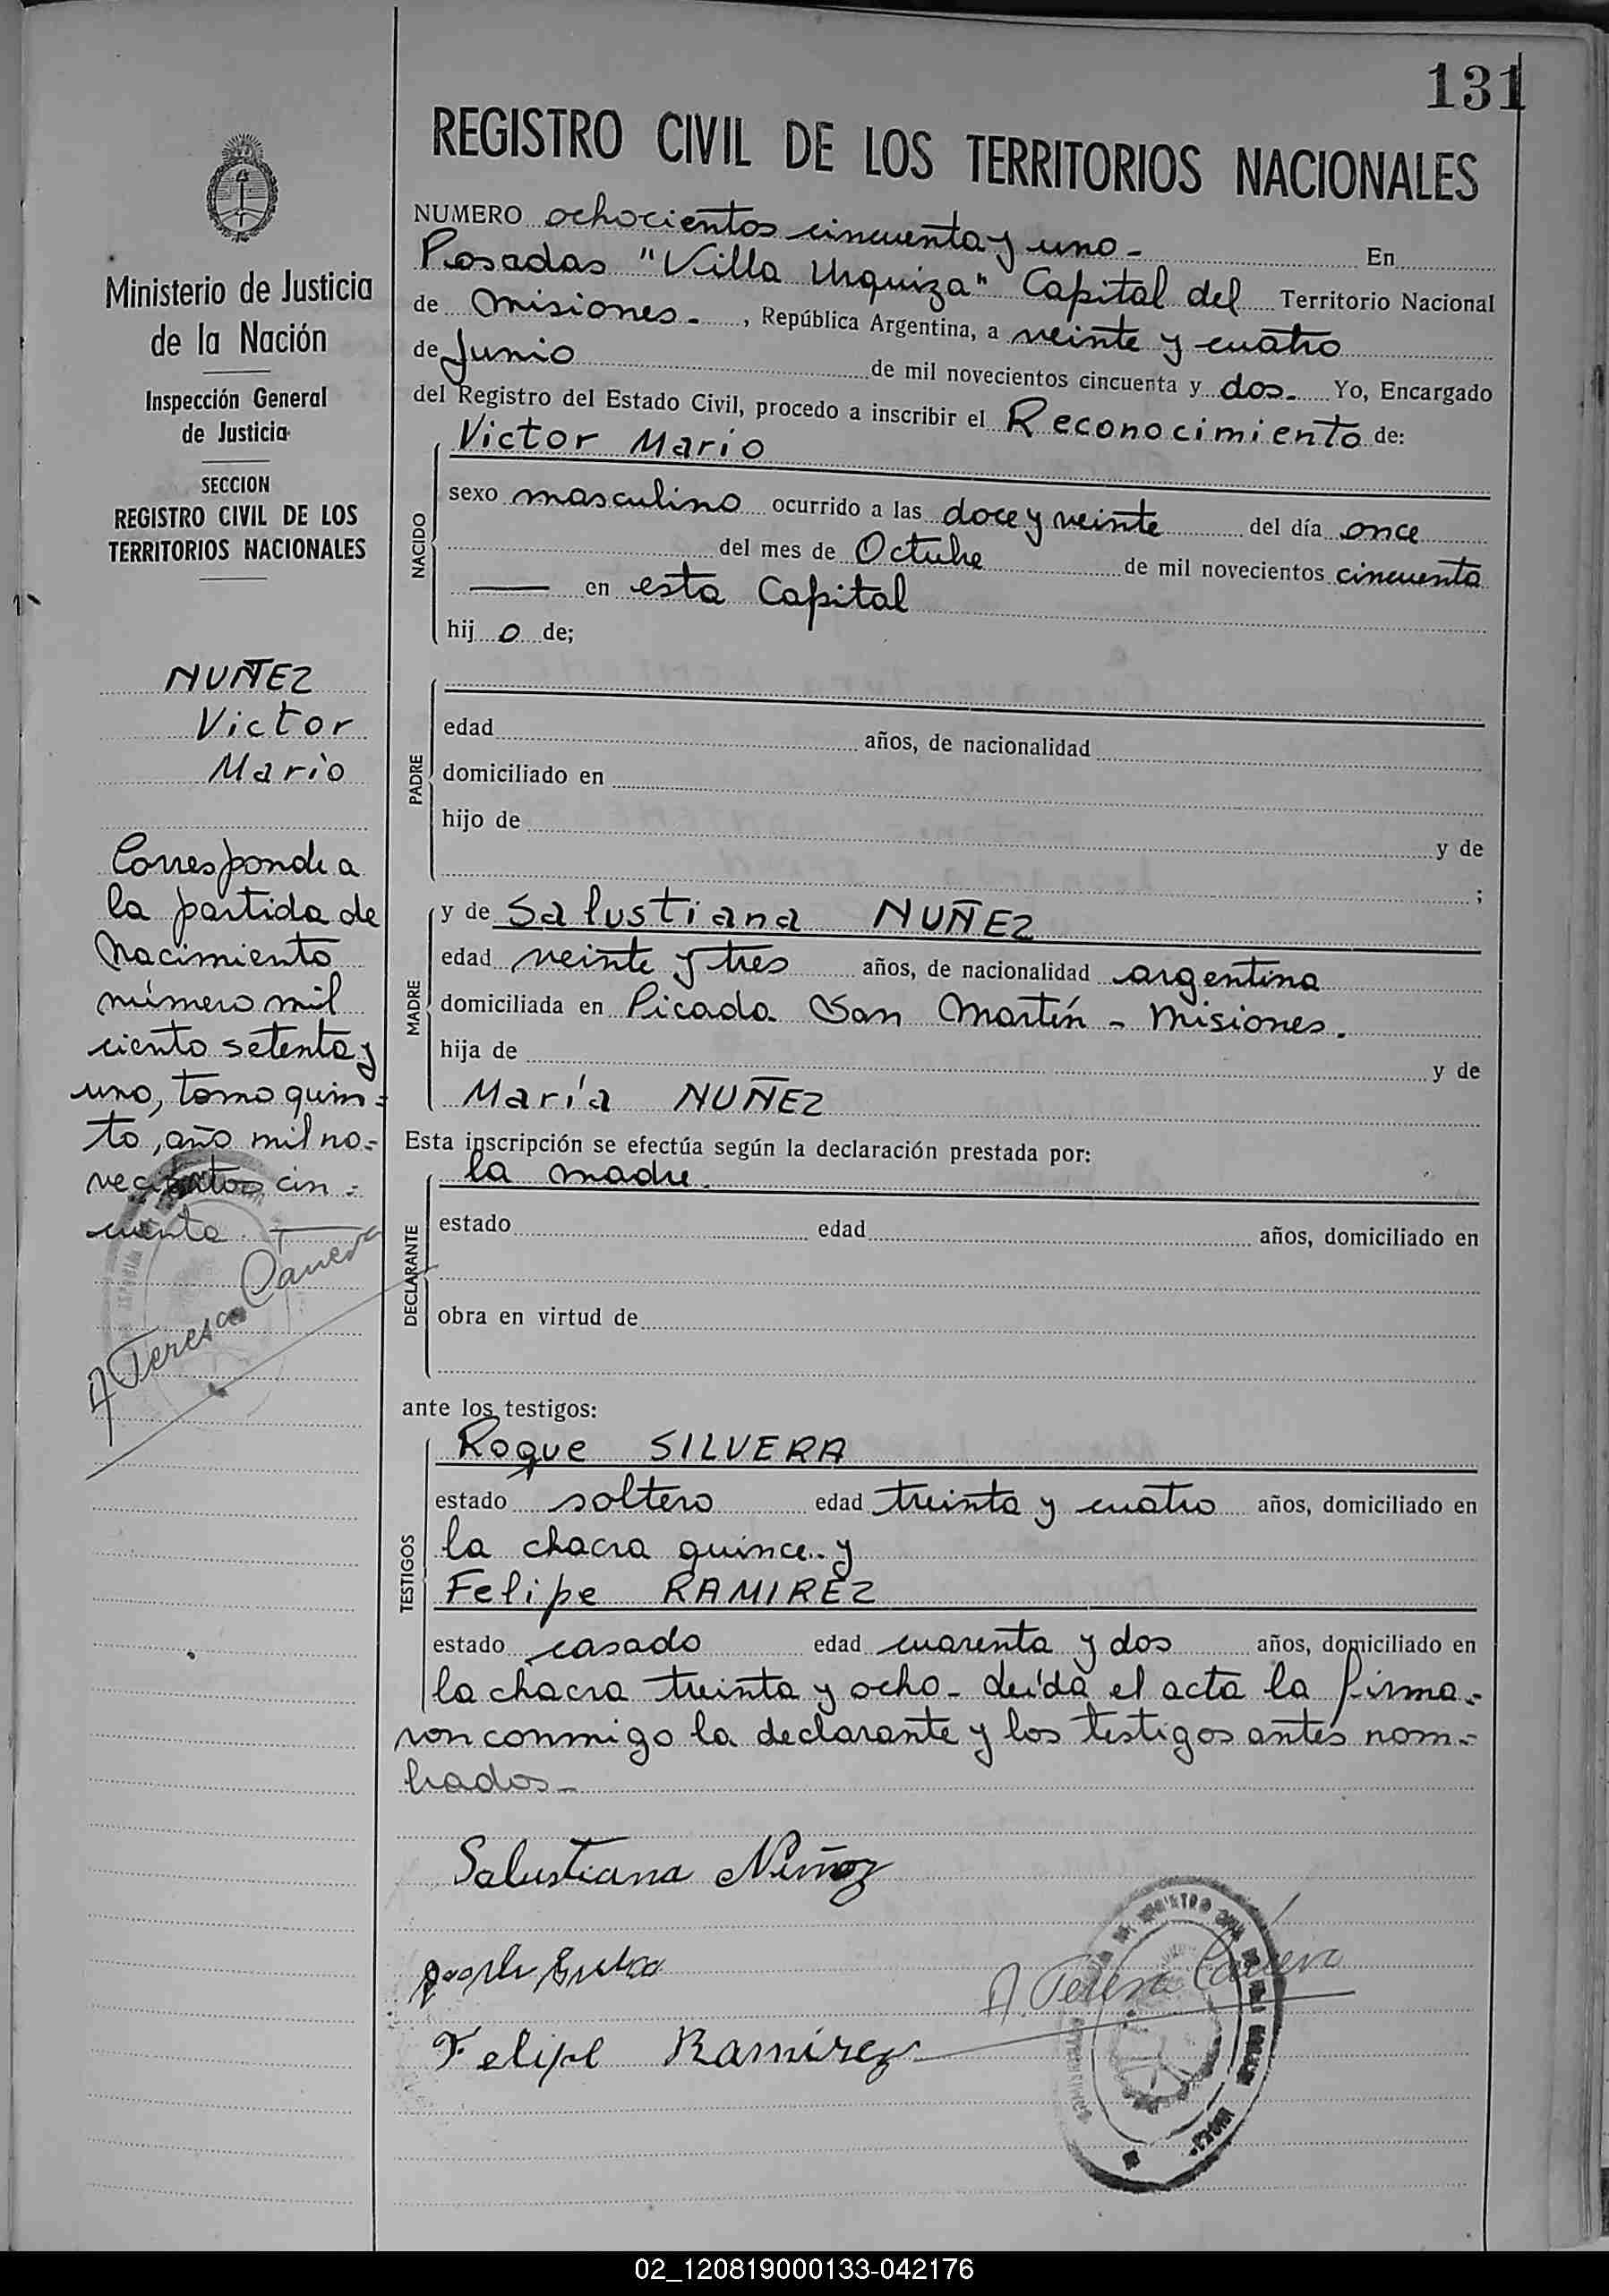 131
REGISTRO CIVIL DE LOS TERRITORIOS NACIONALES
Ministerio de Justicia
de la Nación
Inspección General
de Justicia
SECCION
REGISTRO CIVIL DE LOS
TERRITORIOS NACIONALES
NUÑEZ
Victor
Mario
Corresponde a
la partida de
Nacimiento
número mil
ciento setenta y
uno, tomo quin=
to, año mil no=
vecientos cin=
cuenta.
A Teresa Canevo
NUMERO ochocientos cincuenta y uno - En
Posadas "Villa Urquiza" Capital del Territorio Nacional
de Misiones - , República Argentina, a veinte y cuatro
de Junio de mil novecientos cincuenta y dos - Yo, Encargado
del Registro del Estado Civil, procedo a inscribir el Reconocimiento de:
Victor Mario
NACIDO
sexo masculino ocurrido a las doce y veinte del día once
del mes de Octubre de mil novecientos cincuenta
— en esta Capital
hij o de;
PADRE
edad años, de nacionalidad
domiciliado en
hijo de y de
;
MADRE
y de Salustiana NUÑEZ
edad veinte y tres años, de nacionalidad argentina
domiciliada en Picada San Martín - Misiones.
hija de y de
María NUÑEZ
Esta inscripción se efectúa según la declaración prestada por:
la madre.
DECLARANTE
estado edad años, domiciliado en
obra en virtud de
ante los testigos:
TESTIGOS
Roque SILVERA
estado soltero edad treinta y cuatro años, domiciliado en
la chacra quince y
Felipe RAMIREZ
estado casado edad cuarenta y dos años, domiciliado en
la chacra treinta y ocho - Leída el acta la firma=
ron conmigo la declarante y los testigos antes nom=
brados -
Salustiana Nuñez
A. Teresa
Felipe Ramirez
02_120819000133-042176